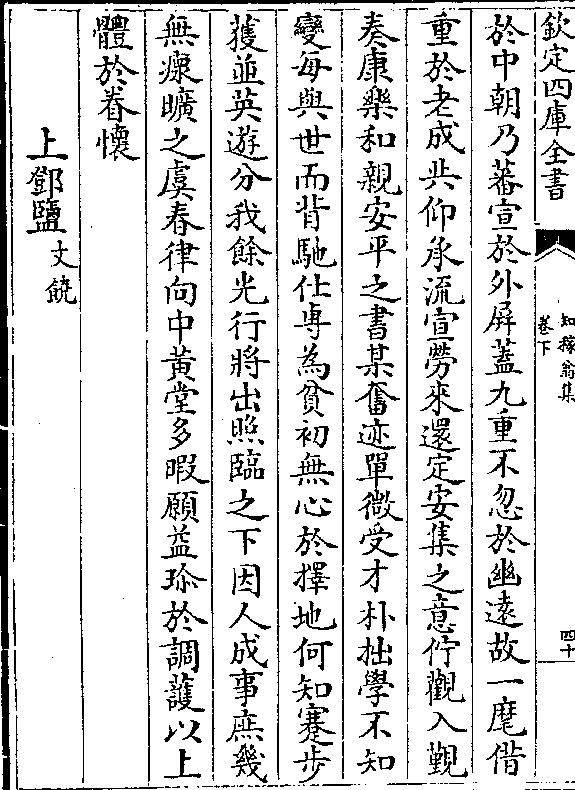 欽定四庫全書
知稼翁集
卷下
四十
於中朝乃蕃宣於外屏蓋九重不忽於幽遠故一麾借
重於老成共仰承流宣勞來還定安集之意佇觀入覲
奏康樂和親安平之書某奮迹單微受才朴拙學不知
變每與世而背馳仕專為貧初無心於擇地何知蹇步
獲並英遊分我餘光行將出照臨之下因人成事庶幾
無瘝曠之虞春律向中黃堂多暇願益珍於調護以上
體於眷懷
上鄧鹽丈饒